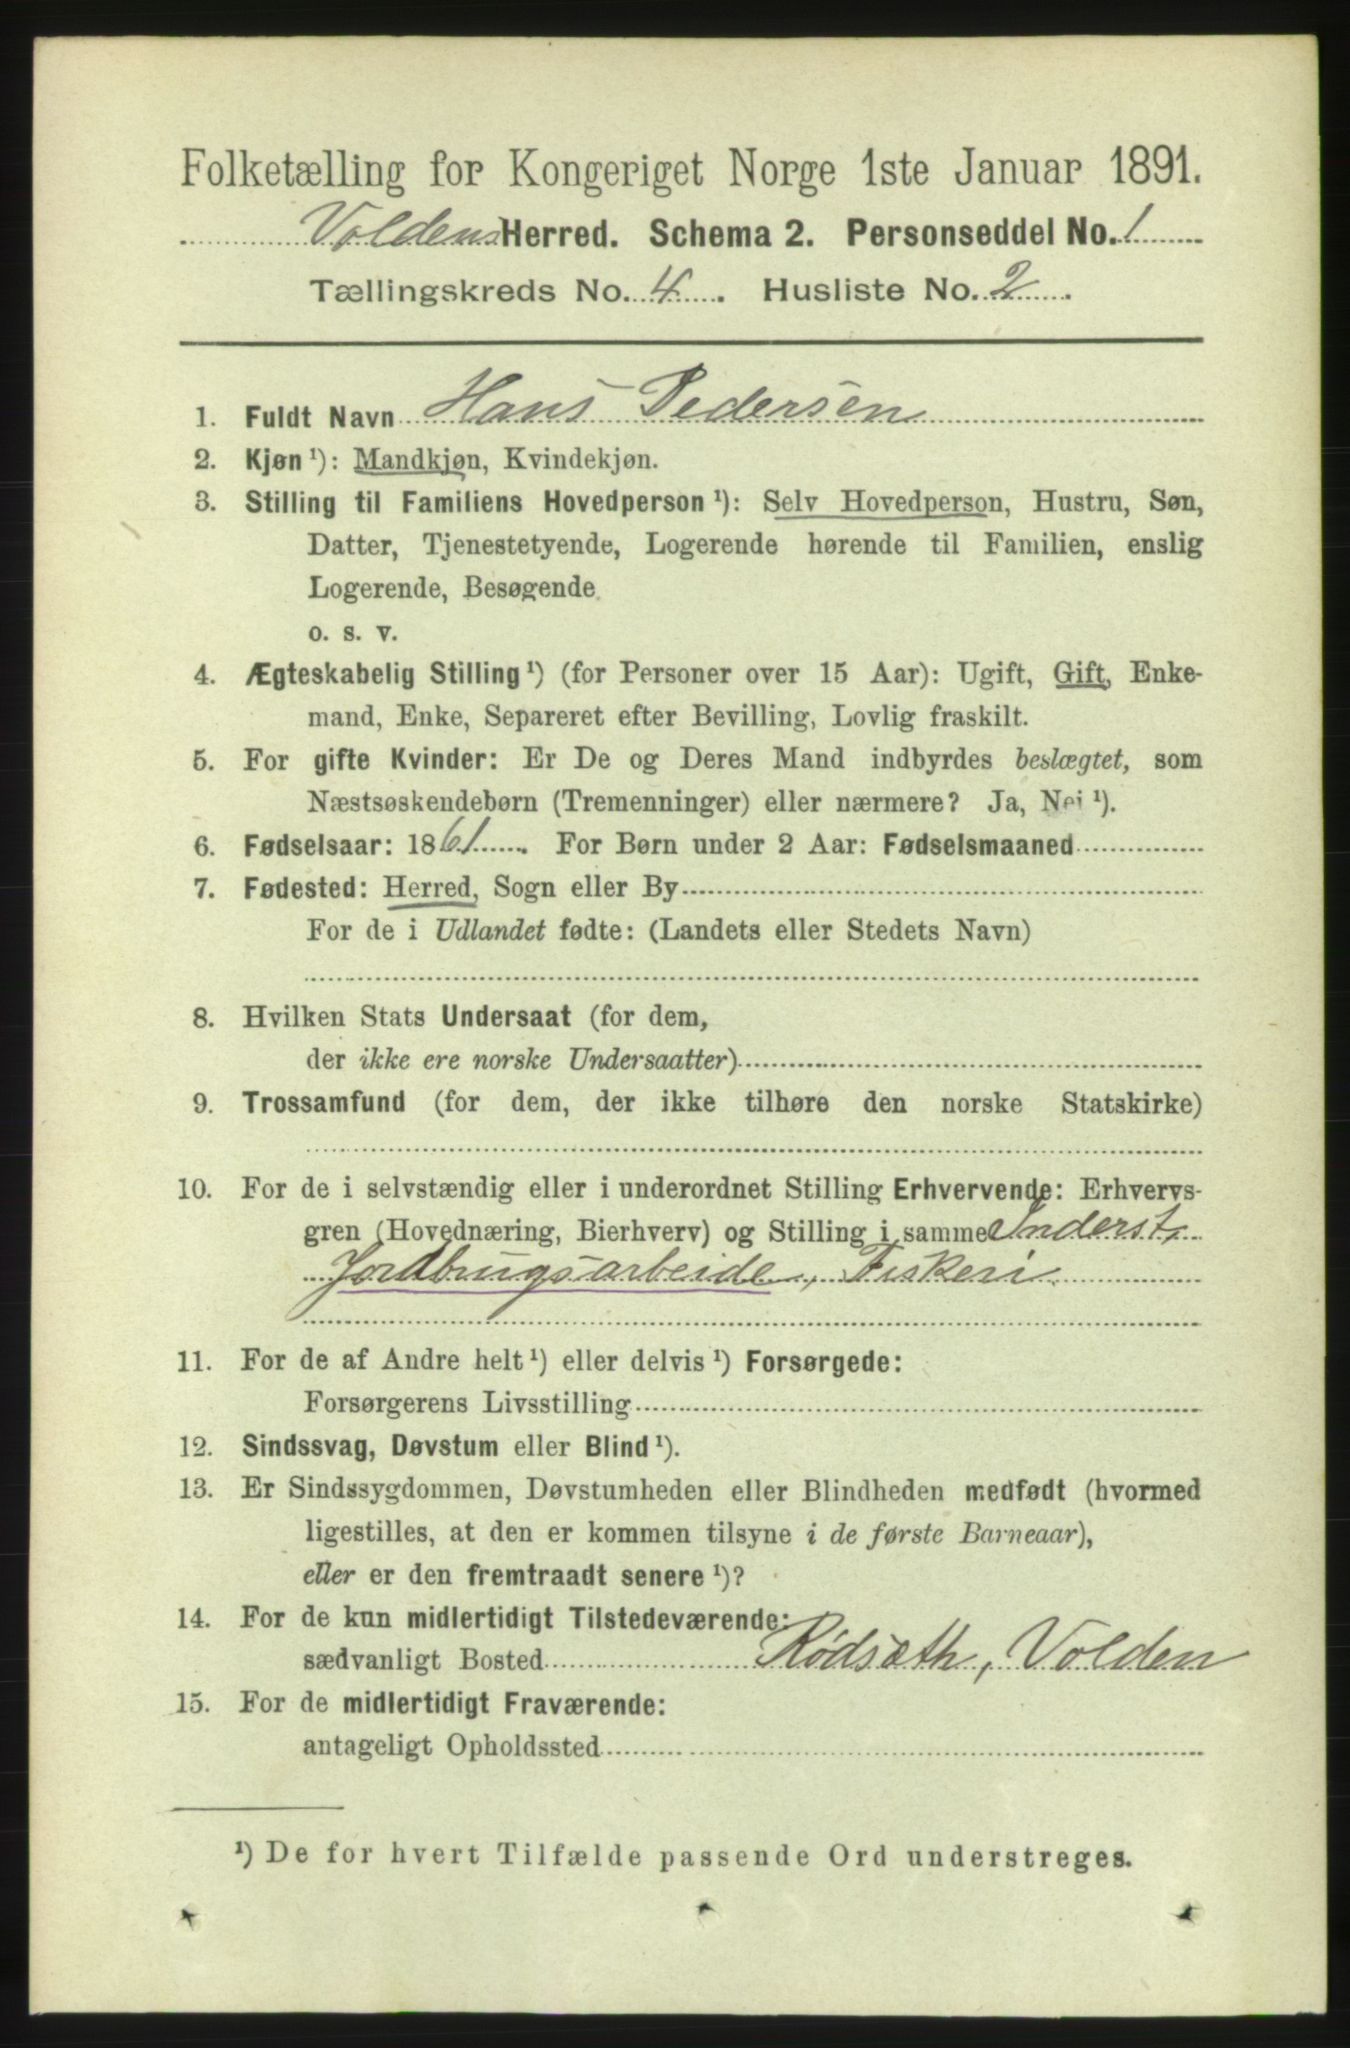 Folketælling for Kongeriget Norge 1ste Januar 1891.
Voldens Herred. Schema 2. Personseddel No. 1
Tællingskreds No. 4. Husliste No. 2.
1. Fuldt Navn Hans Pedersen
2. Kjøn ¹): Mandkjøn, Kvindekjøn.
3. Stilling til Familiens Hovedperson ¹): Selv Hovedperson, Hustru, Søn,
Datter, Tjenestetyende, Logerende hørende til Familien, enslig
Logerende, Besøgende
o. s. v.
4. Ægteskabelig Stilling ¹) (for Personer over 15 Aar): Ugift, Gift, Enke-
mand, Enke, Separeret efter Bevilling, Lovlig fraskilt.
5. For gifte Kvinder: Er De og Deres Mand indbyrdes beslægtet, som
Næstsøskendebørn (Tremenninger) eller nærmere? Ja, Nei ¹).
6. Fødselsaar: 1861. For Børn under 2 Aar: Fødselsmaaned
7. Fødested: Herred, Sogn eller By
For de i Udlandet fødte: (Landets eller Stedets Navn)
8. Hvilken Stats Undersaat (for dem,
der ikke ere norske Undersaatter)
9. Trossamfund (for dem, der ikke tilhøre den norske Statskirke)
10. For de i selvstændig eller i underordnet Stilling Erhvervende: Erhvervs-
gren (Hovednæring, Bierhverv) og Stilling i samme Inderst,
Jordbrugsarbeide, Fiskeri
11. For de af Andre helt ¹) eller delvis ¹) Forsørgede:
Forsørgerens Livsstilling
12. Sindssvag, Døvstum eller Blind ¹).
13. Er Sindssygdommen, Døvstumheden eller Blindheden medfødt (hvormed
ligestilles, at den er kommen tilsyne i de første Barneaar),
eller er den fremtraadt senere ¹)?
14. For de kun midlertidigt Tilstedeværende:
sædvanligt Bosted Rødsæth, Volden
15. For de midlertidigt Fraværende:
antageligt Opholdssted
¹) De for hvert Tilfælde passende Ord understreges.